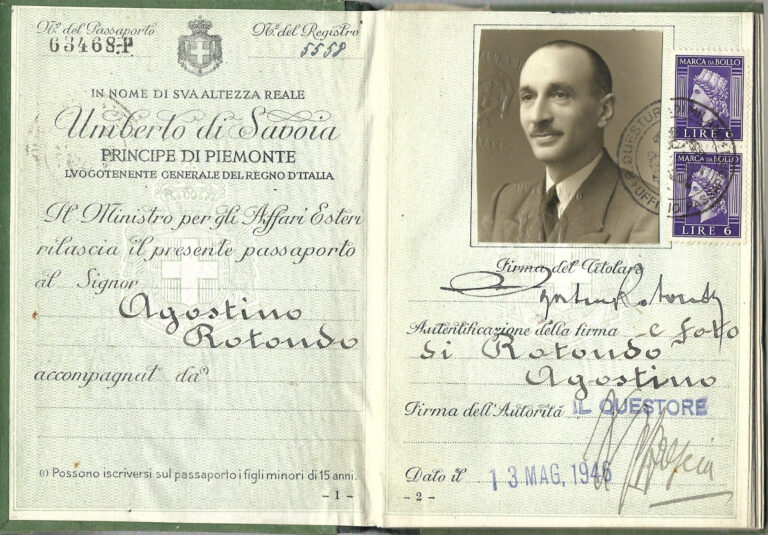 N.º del Passaporto
63468-P
N.º del Registro
5558
IN NOME DI SVA ALTEZZA REALE
Umberto di Savoia
PRINCIPE DI PIEMONTE
LVOGOTENENTE GENERALE DEL REGNO D'ITALIA
Il Ministro per gli Affari Esteri
rilascia il presente passaporto
al Signor
Agostino
Rotondo
accompagnat da(1)
(1) Possono iscriversi sul passaporto i figli minori di 15 anni.
- 1 -
MARCA DA BOLLO
LIRE 6
MARCA DA BOLLO
LIRE 6
QUESTURA
UFFICIO
Firma del Titolare
Agostino Rotondo
Autentificazione della firma e foto
di Rotondo
Agostino
Firma dell'Autorità IL QUESTORE
Dato il 13 MAG. 1946
- 2 -